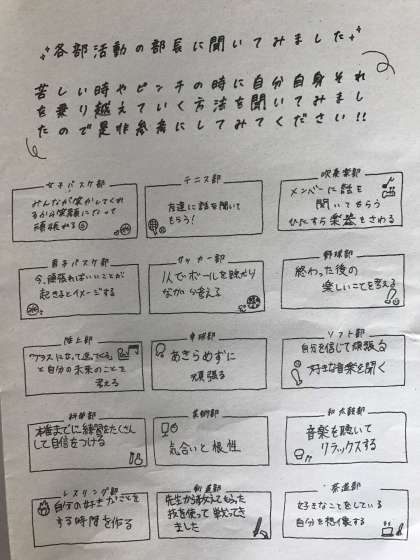 各部活動の部長に聞いてみました
苦しい時やピンチの時に自分自身それ
を乗り越えていく方法を聞いてみまし
たので是非参考にしてみてください!!
女子バスケ部
みんなが笑かしてくれ
るから笑顔になって
頑張れる
テニス部
友達に話を聞いて
もらう!
吹奏楽部
メンバーに話を
聞いてもらう
ひたすら楽器をさわる
男子バスケ部
今、頑張ればいいことが
起きるとイメージする
サッカー部
1人でボールを蹴り
ながら考える
野球部
終わった後の
楽しいことを考える
陸上部
プラスになって返ってくる
と自分の未来のことを
考える
卓球部
あきらめずに
頑張る
ソフト部
自分を信じて頑張る
好きな音楽を聞く
本番までに練習をたくさん
して自信をつける
美術部
気合いと根性
和太鼓部
音楽を聴いて
リラックスする
レスリング部
自分の好きなことを
する時間を作る
剣道部
先生から教えてもらった
技を使って戦ってき
ました
茶道部
好きなことをしている
自分を想像する